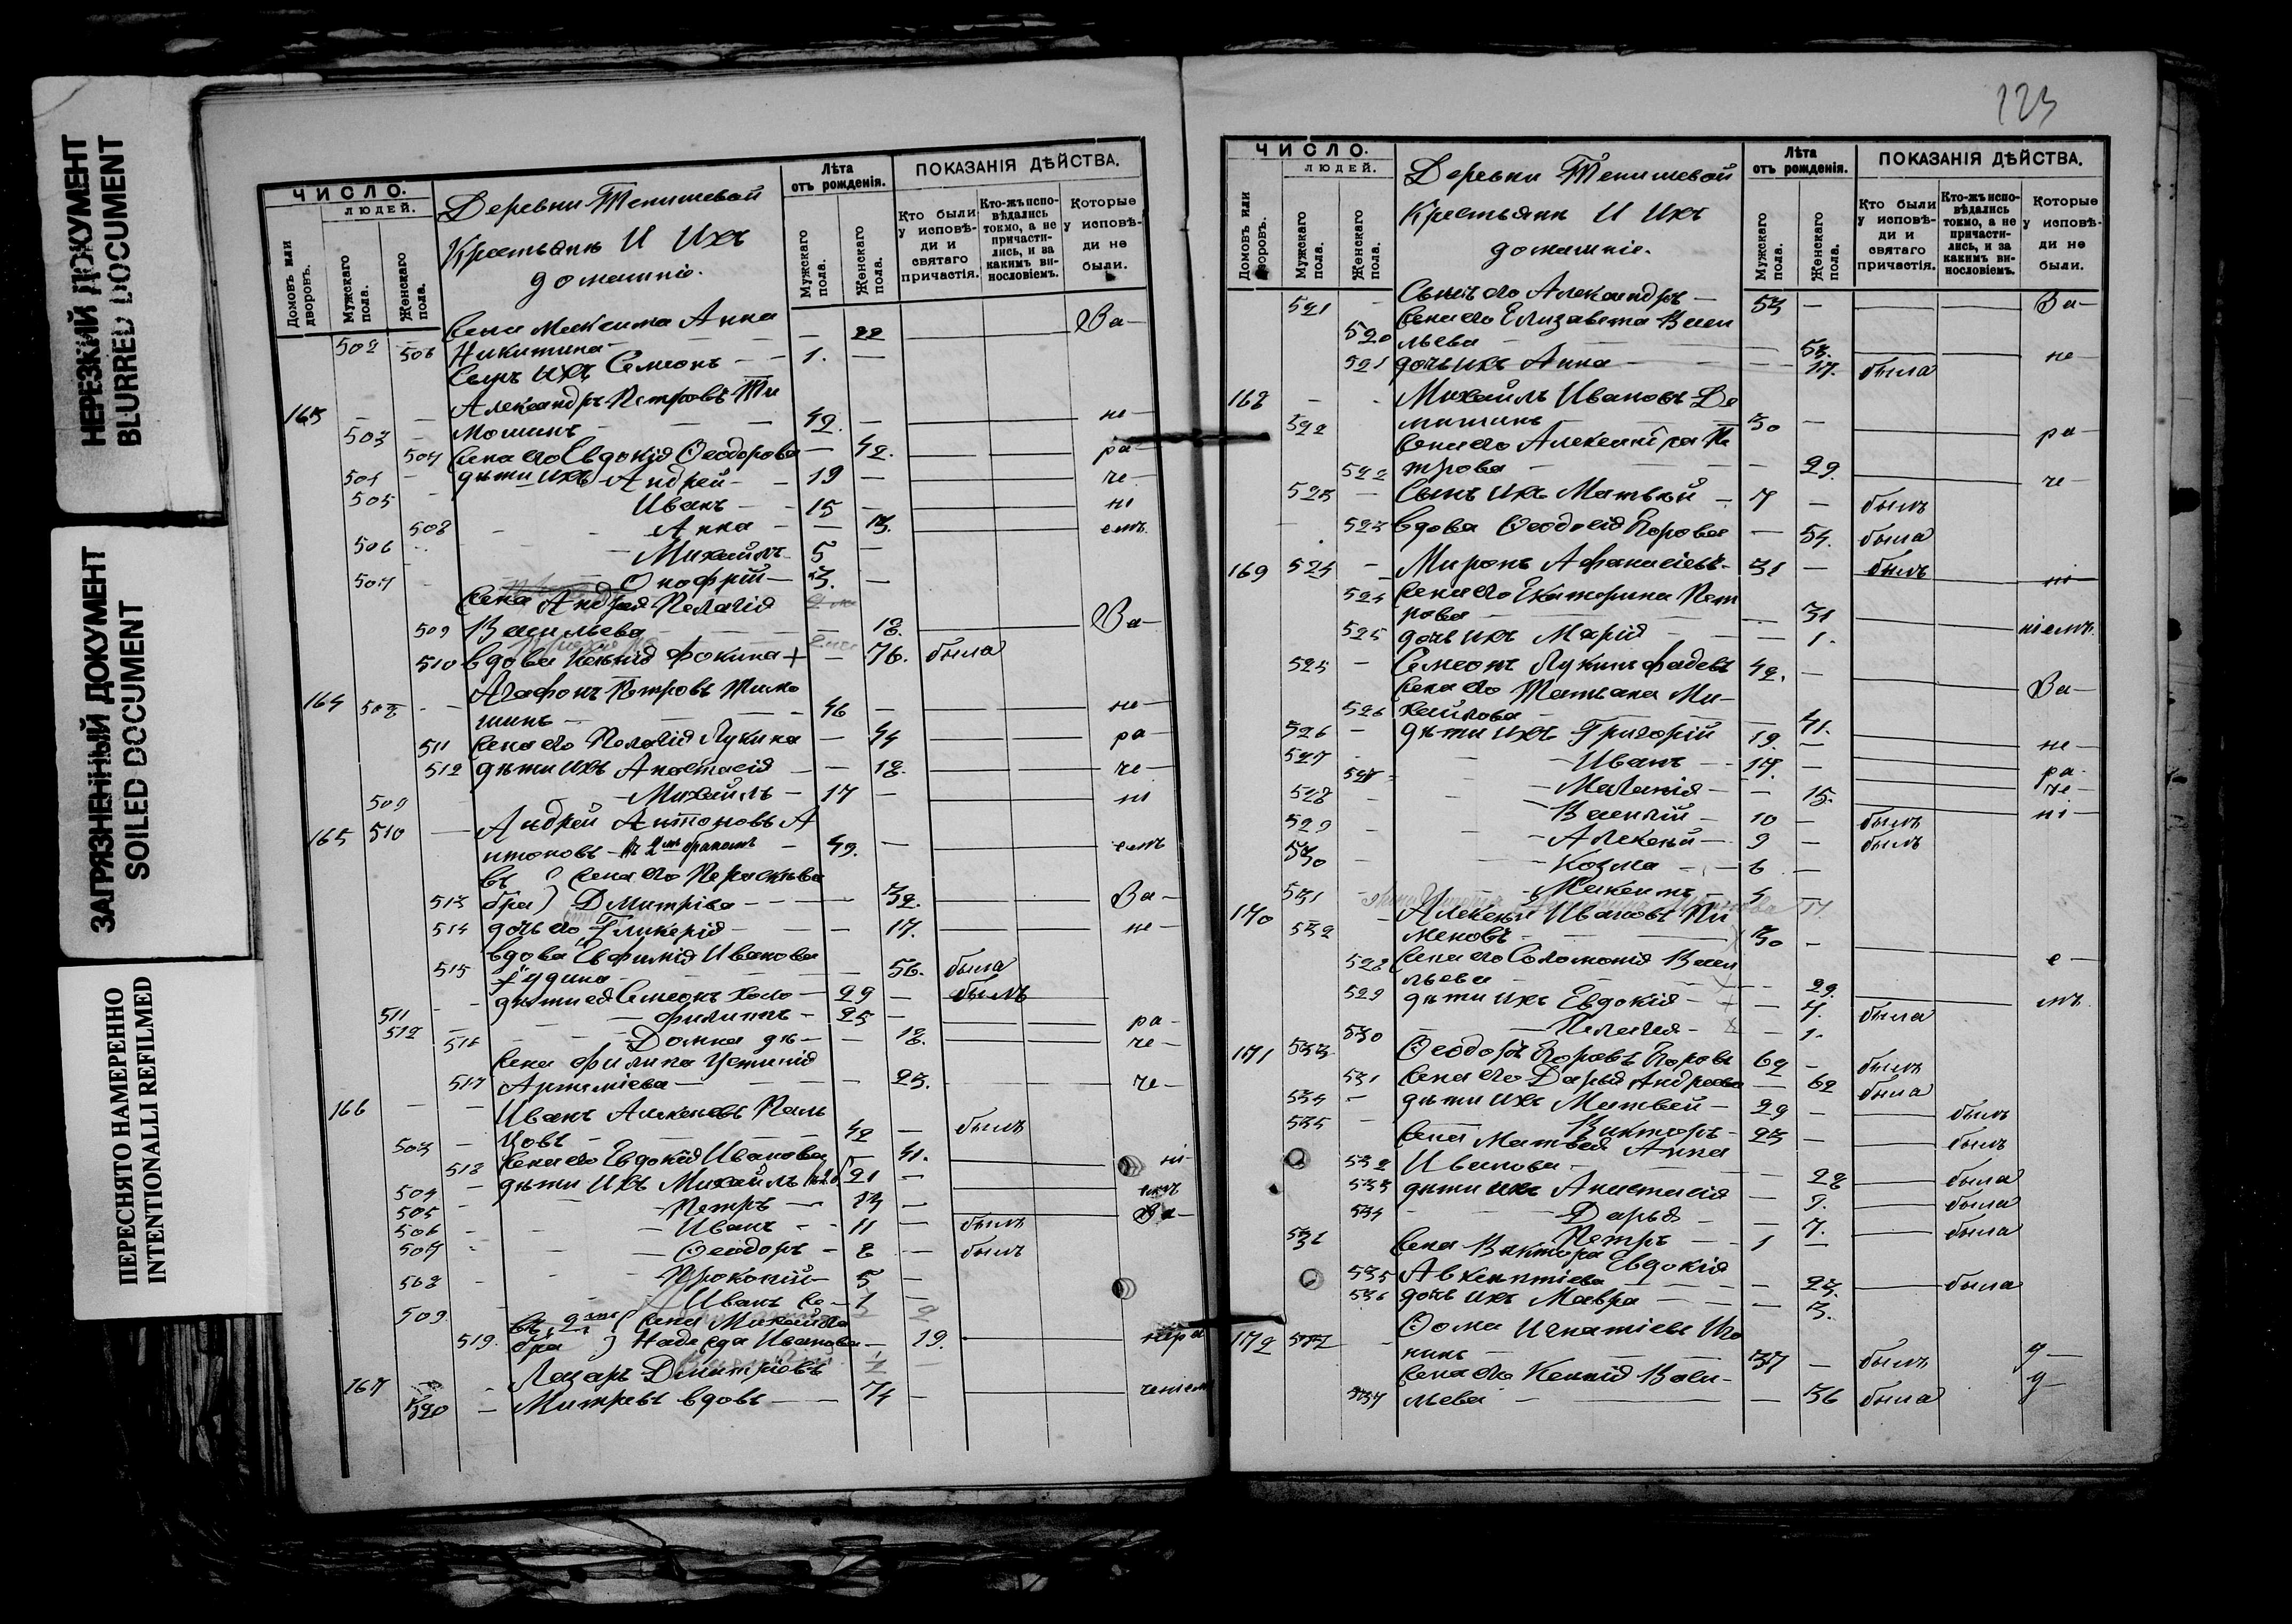 НЕРЕЗКИЙ ДОКУМЕНТ
BLURRED DOCUMENT
ЗАГРЯЗНЕННЫЙ ДОКУМЕНТ
SOILED DOCUMENT
ПЕРЕСНЯТО НАМЕРЕННО
INTENTIONALLI REFILMED
ЧИСЛО.
ЛЮДЕЙ.
Домовъ или дворовъ.
Мужскаго пола.
Женскаго пола.
Деревни Тенишевой
Крестьяне И Ихъ
домашніе.
Лѣта
отъ рожденія.
Мужскаго пола.
Женскаго пола.
ПОКАЗАНІЯ ДѢЙСТВА.
Кто были у исповѣди и святаго причастія.
Кто-жъ исповѣдались токмо, а не причастились, и за какимъ винословіемъ.
Которые у исповѣди не были.
Жена Максима Анна
502 506 Никитина — 22 За—
Сынъ ихъ Семеонъ — 1. —
163 Александръ Петровъ Ти
503 мошинъ — 42. — не—
507 жена его Евдокія Ѳеодорова — 42. ра—
504 дѣти ихъ Андрей — 19 — че—
505 Иванъ — 15 — ні
508 Анна — 13. емъ.
506 Михаилъ 5 —
507 Онофрій — 3. —
Жена Андрея Пелагія
509 Васильева — 18. За—
510 вдова Ксенія Фокина + — 76. была
164 508 Агафонъ Петровъ Тимо
шинъ — 46 — не—
511 жена его Пелагія Лукина — 44 ра—
512 дѣти ихъ Анастасія — 18. че—
509 Михаилъ — 17 — ні
165 510 — Андрей Антоновъ А
нтоновъ — 49. — емъ
въ жена его Параскева
513 бра) Дмитріева — 32. За—
514 дочь его Гликерія — 17. не—
вдова Евфимія Иванова
515 — 56. была
дѣти ея Семеонъ холо — 29 — былъ
511 Филиппъ — 25 — ра—
512 516 Домна дѣ — 18. че—
жена Филипа Устинія
517 Артеміева — 23. че—
166 Иванъ Алексеевъ Паль
503 цовъ — 42 — былъ
518 жена его Евдокія Иванова — 41. ні—
504 дѣти ихъ Михаилъ 21 — емъ
505 Петръ — 13 — За—
506 Иванъ — 11 — былъ
507 Ѳеодоръ — 8 — былъ
508 Прокопій — 5 —
509 Иванъ — 1 —
въ 2мъ жена Михаила
519. бра) Надежда Иванова — 19. — нера
Лазарь Дмитріевъ
167 520 — Митревъ вдовъ — 74 — ченіемъ
123
ЧИСЛО.
ЛЮДЕЙ.
Домовъ или дворовъ.
Мужскаго пола.
Женскаго пола.
Деревни Тенишевой
Крестьяне И Ихъ
домашніе.
Лѣта
отъ рожденія.
Мужскаго пола.
Женскаго пола.
ПОКАЗАНІЯ ДѢЙСТВА.
Кто были у исповѣди и святаго причастія.
Кто-жъ исповѣдались токмо, а не причастились, и за какимъ винословіемъ.
Которые у исповѣди не были.
521 — Сынъ его Александръ — 53 — За—
жена его Елизавета Васи
520 льева — 53. не—
521 дочь ихъ Анна — 17. была
168 Михаилъ Ивановъ Де
522 ментинъ — 30 — ра—
жена его Александра Пе
522 трова — 29. че—
523 — Сынъ ихъ Матвѣй — 7 — былъ
523 вдова Ѳеодосія Егорова — 54. была
169 524 — Миронъ Афанасіевъ — 31 — былъ ні
524 жена его Екатерина Пет
рова — 31 ніемъ.
525 дочь ихъ Марія — 1.
525 — Семеонъ Лукинъ Фадевъ 42. —
жена его Татьяна Ми— За—
526 хайлова — 41.
526 — дѣти ихъ Григорій 19. — не—
527 Иванъ — 17. — ра—
527 Маланія — 15. че—
528 Василій — 10 — былъ ні—
529 Алексѣй — 9 — былъ
530 Козма — 6 —
531 Максимъ — 4
170 Алексѣй Ивановъ Пи
532 меновъ — 30 —
528 жена его Соломонія Васи е—
льева — 29.
529 дѣти ихъ Евдокія — 7. была мъ
530 Пелагія — 1.
171 533 Ѳеодоръ Егоровъ Егоровъ 62 — былъ
531 жена его Дарья Андреева — 62 была
534 — дѣти ихъ Матвей — 29 — былъ
535 Викторъ — 25 — былъ
жена Матвея Анна
532 Иванова — 28 — была
533 дѣти ихъ Анастасія — 9. — была
534 Дарья — 7. — была
536 Петръ — 1 —
жена Виктора Евдокія
535 Авксентіева — 23. — была
536 дочь ихъ Мавра — 3.
172 537 Ѳома Игнатіевъ Иго
нинъ — 37 — былъ
жена его Ксенія Васи—
537 льева — 36 была